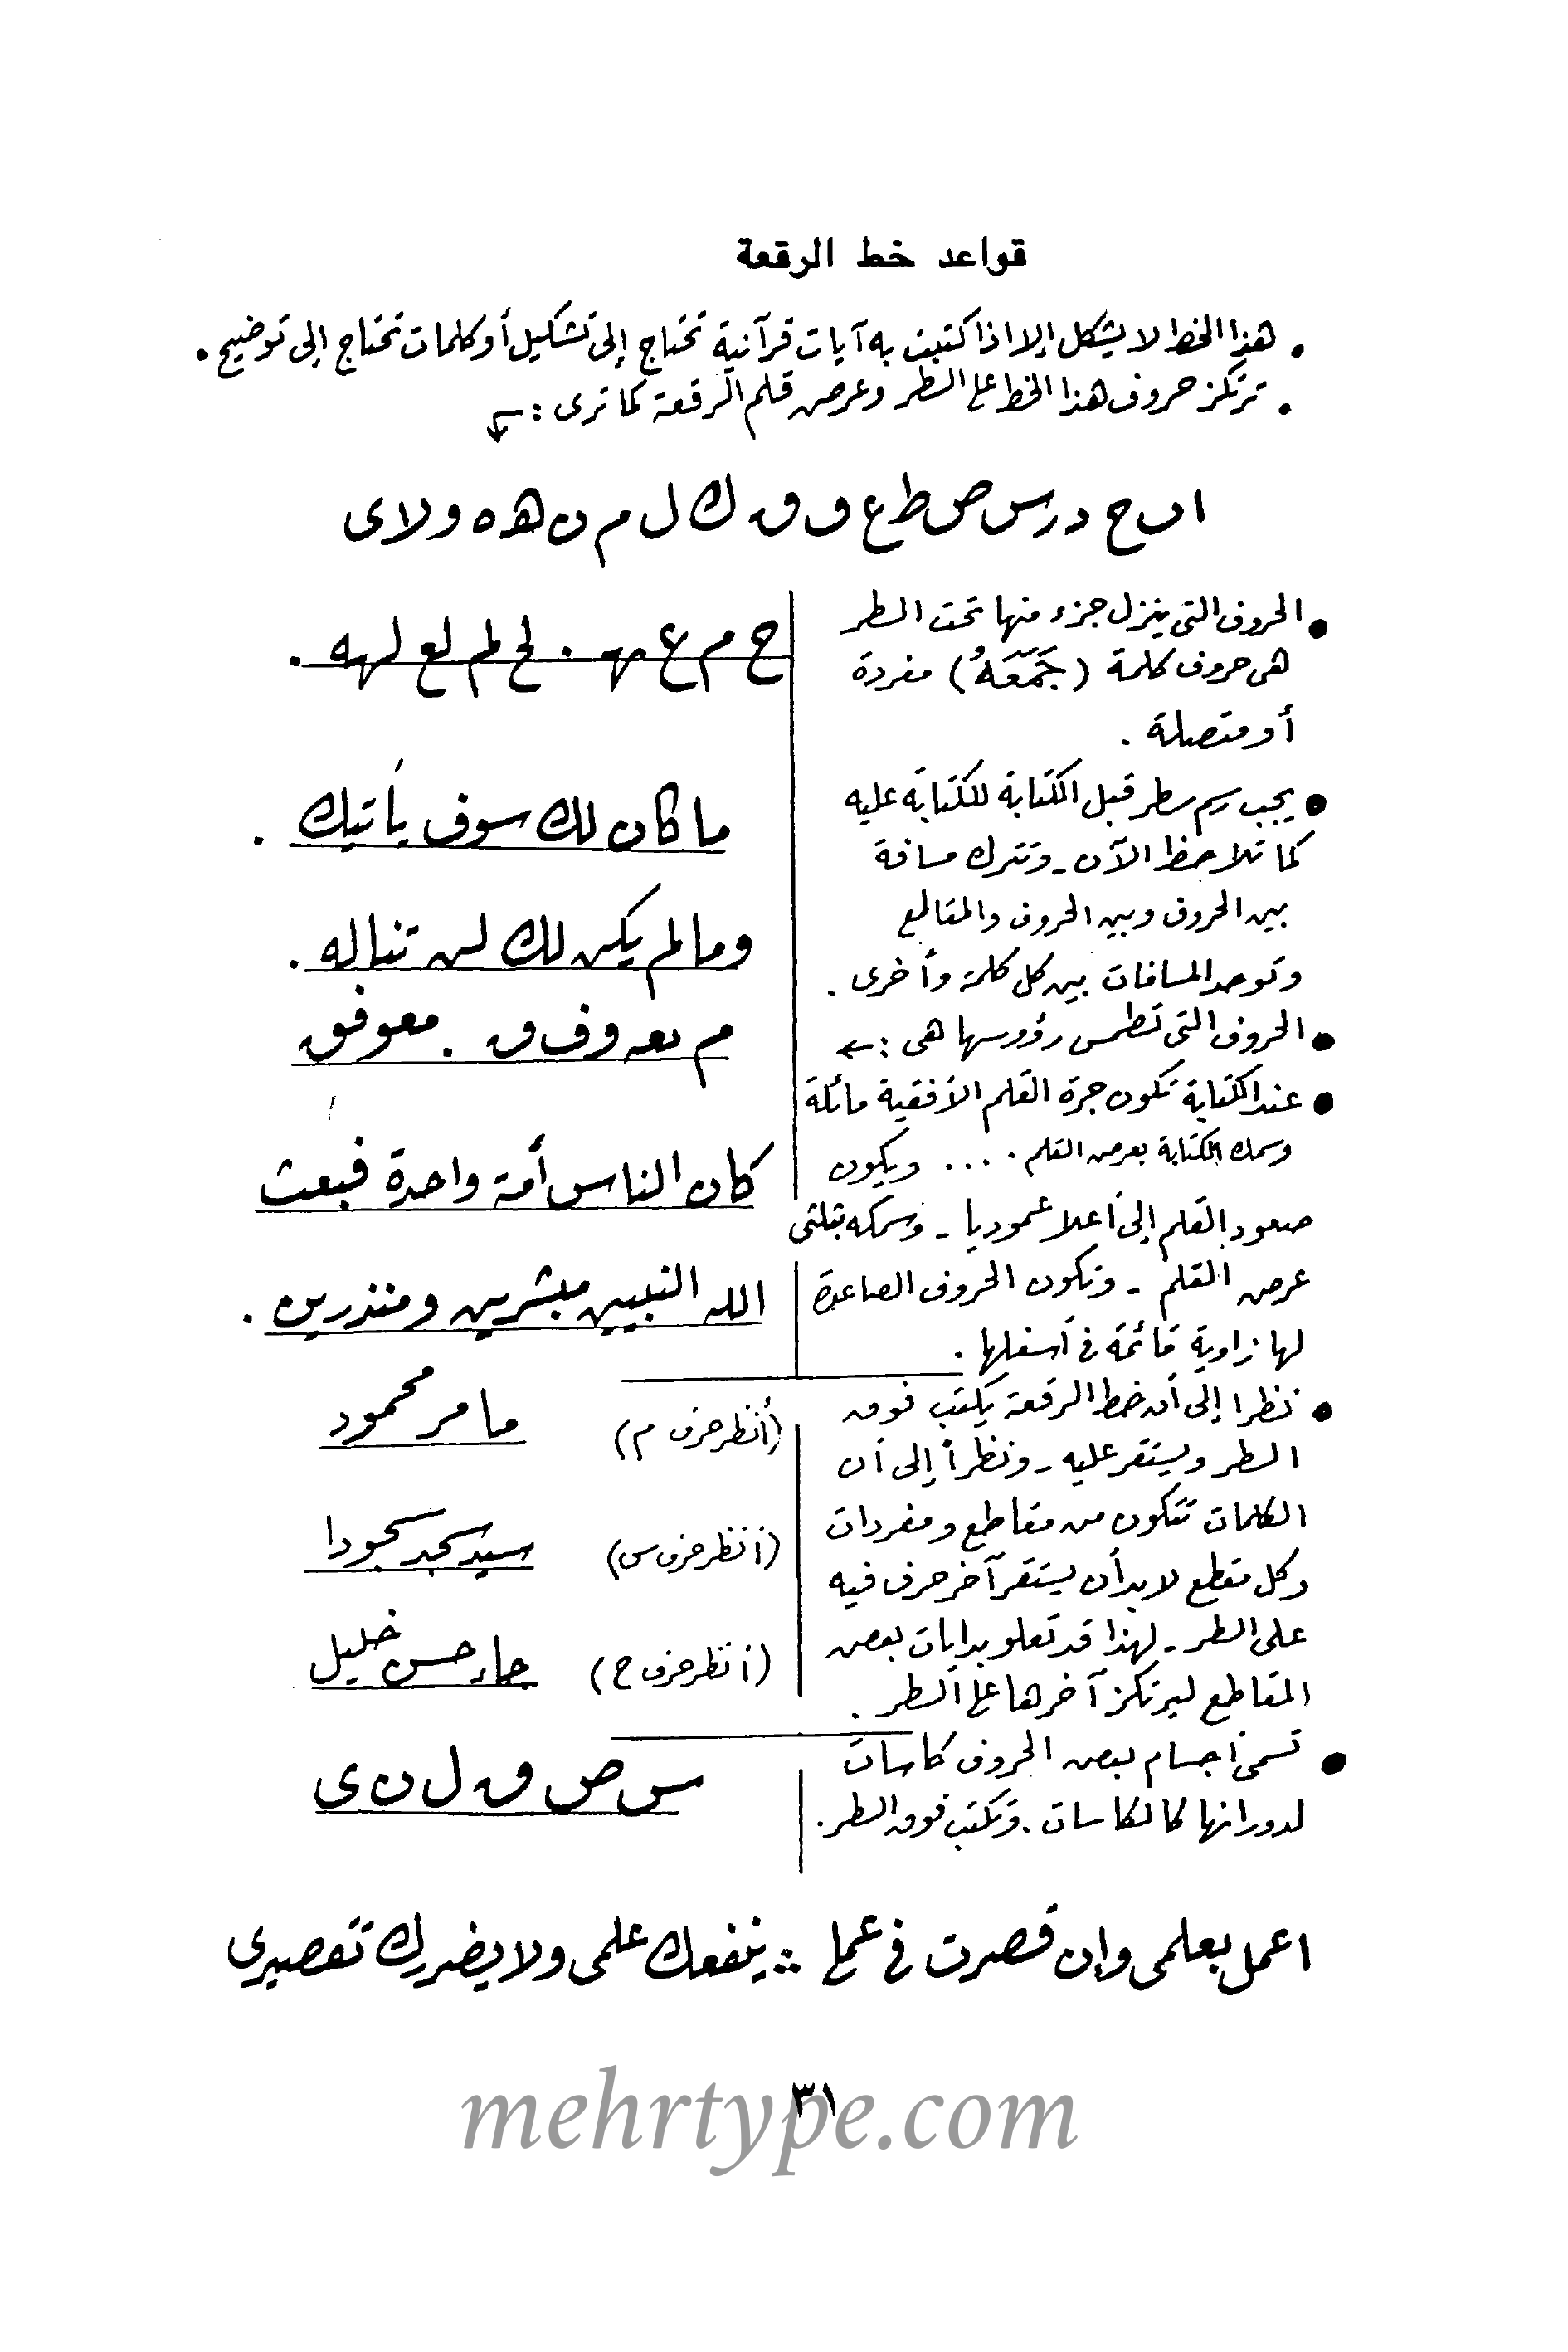 قواعد خط الرقعة
• هذا الخط لا يشكل إلا اذا كتبت به آيات قرآنية تحتاج إلى تشكيل أو كلمات تحتاج إلى توضيح .
• ترتكز حروف هذا الخط على السطر وعرض قلم الرقعة كما ترى : ←
ا ب ح د ر س ص ط ع ف ق ك ل م ن ه ه و لا ى
• الحروف التى ينزل جزء منها تحت السطر
هى حروف كلمة ( جَمَعَهُ ) مفردة
أو متصلة .
ح م ع ه . لح لم لع لهه .
• يجب رسم سطر قبل الكتابة للكتابة عليه
كما تلاحظ الآن - وتترك مسافة
بين الحروف وبين الحروف والمقاطع
وتوحد المسافات بين كل كلمة وأخرى .
ما كان لك سوف يأتيك .
وما لم يكن لك لن تناله .
• الحروف التى تطمس رؤوسها هى : ←
م عه و ف ق . معوفق
• عند الكتابة تكون جرة القلم الأفقية مائلة
وسمك الكتابة بعرض القلم . ... ويكون
صعود القلم إلى أعلا عموديا - وسمكه بثلثى
عرض القلم - وتكون الحروف الصاعدة
لها زاوية قائمة فى أسفلها .
كان الناس أمة واحدة فبعث
الله النبيين مبشرين ومنذرين .
• نظرا إلى أن خط الرقعة يكتب فوق
السطر ويستقر عليه - ونظراً إلى أن
الكلمات تتكون من مقاطع ومفردات
وكل مقطع لابد أن يستقر آخر حرف فيه
على السطر - لهذا قد تعلو بدايات بعض
المقاطع ليرتكز آخرها على السطر .
(أنظر حرف م) ما مر محمود
(أنظر حرف س) سيد سجد سجودا
(أنظر حرف ح) جاء حسن خليل
• تسمى أجسام بعض الحروف كاسات
لدورانها كالكاسات . وتكتب فوق السطر .
س ص ق ل ن ى
اعمل بعلمى وإن قصرت فى عملى ∴ ينفعك علمى ولا يضررك تقصيرى
٣١
mehrtype.com